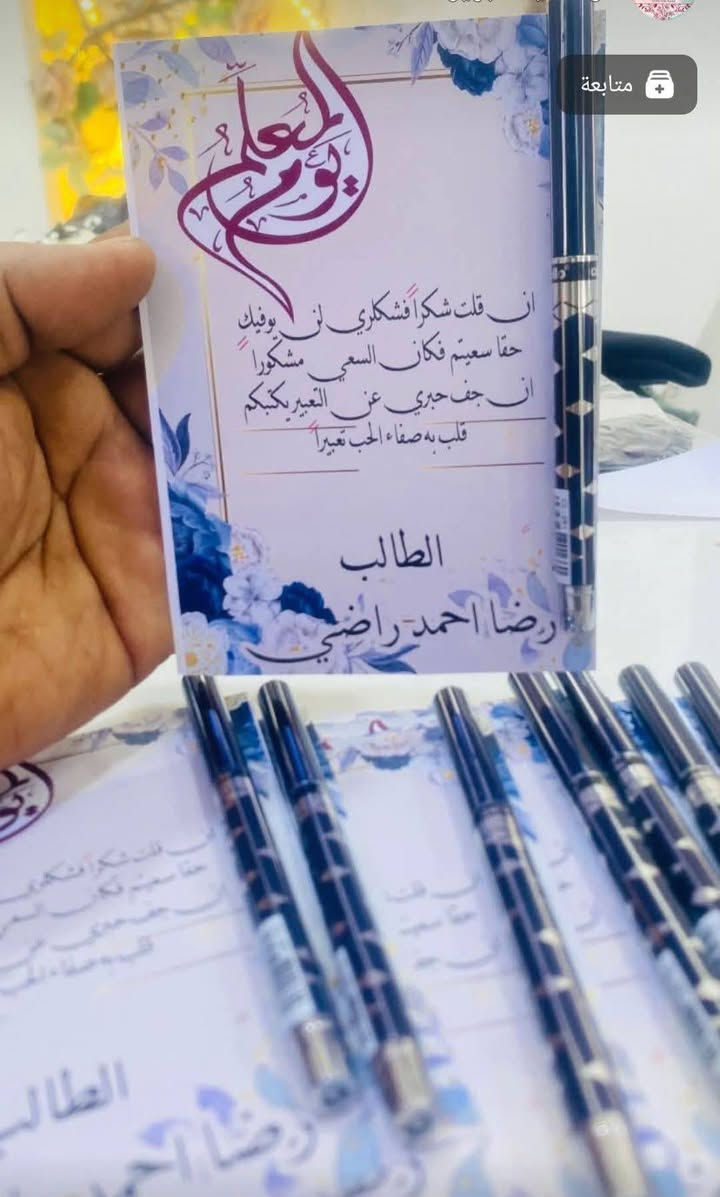 متابعة
يوم المعلم
ان قلت شكراً فشكري لن يوفيك
حقا سعيتم فكان السعي مشكوراً
ان جف حبري عن التعبير يكتبكم
قلب به صفاء الحب تعبيراً
الطالب
رضا احمد راضي
ان قلت شكراً فشكري
حقا سعيتم فكان السعي
ان جف حبري عن
قلب به صفاء الحب
ان قلت
حقا سعيت
ان جف
الطالب
رضا احمد